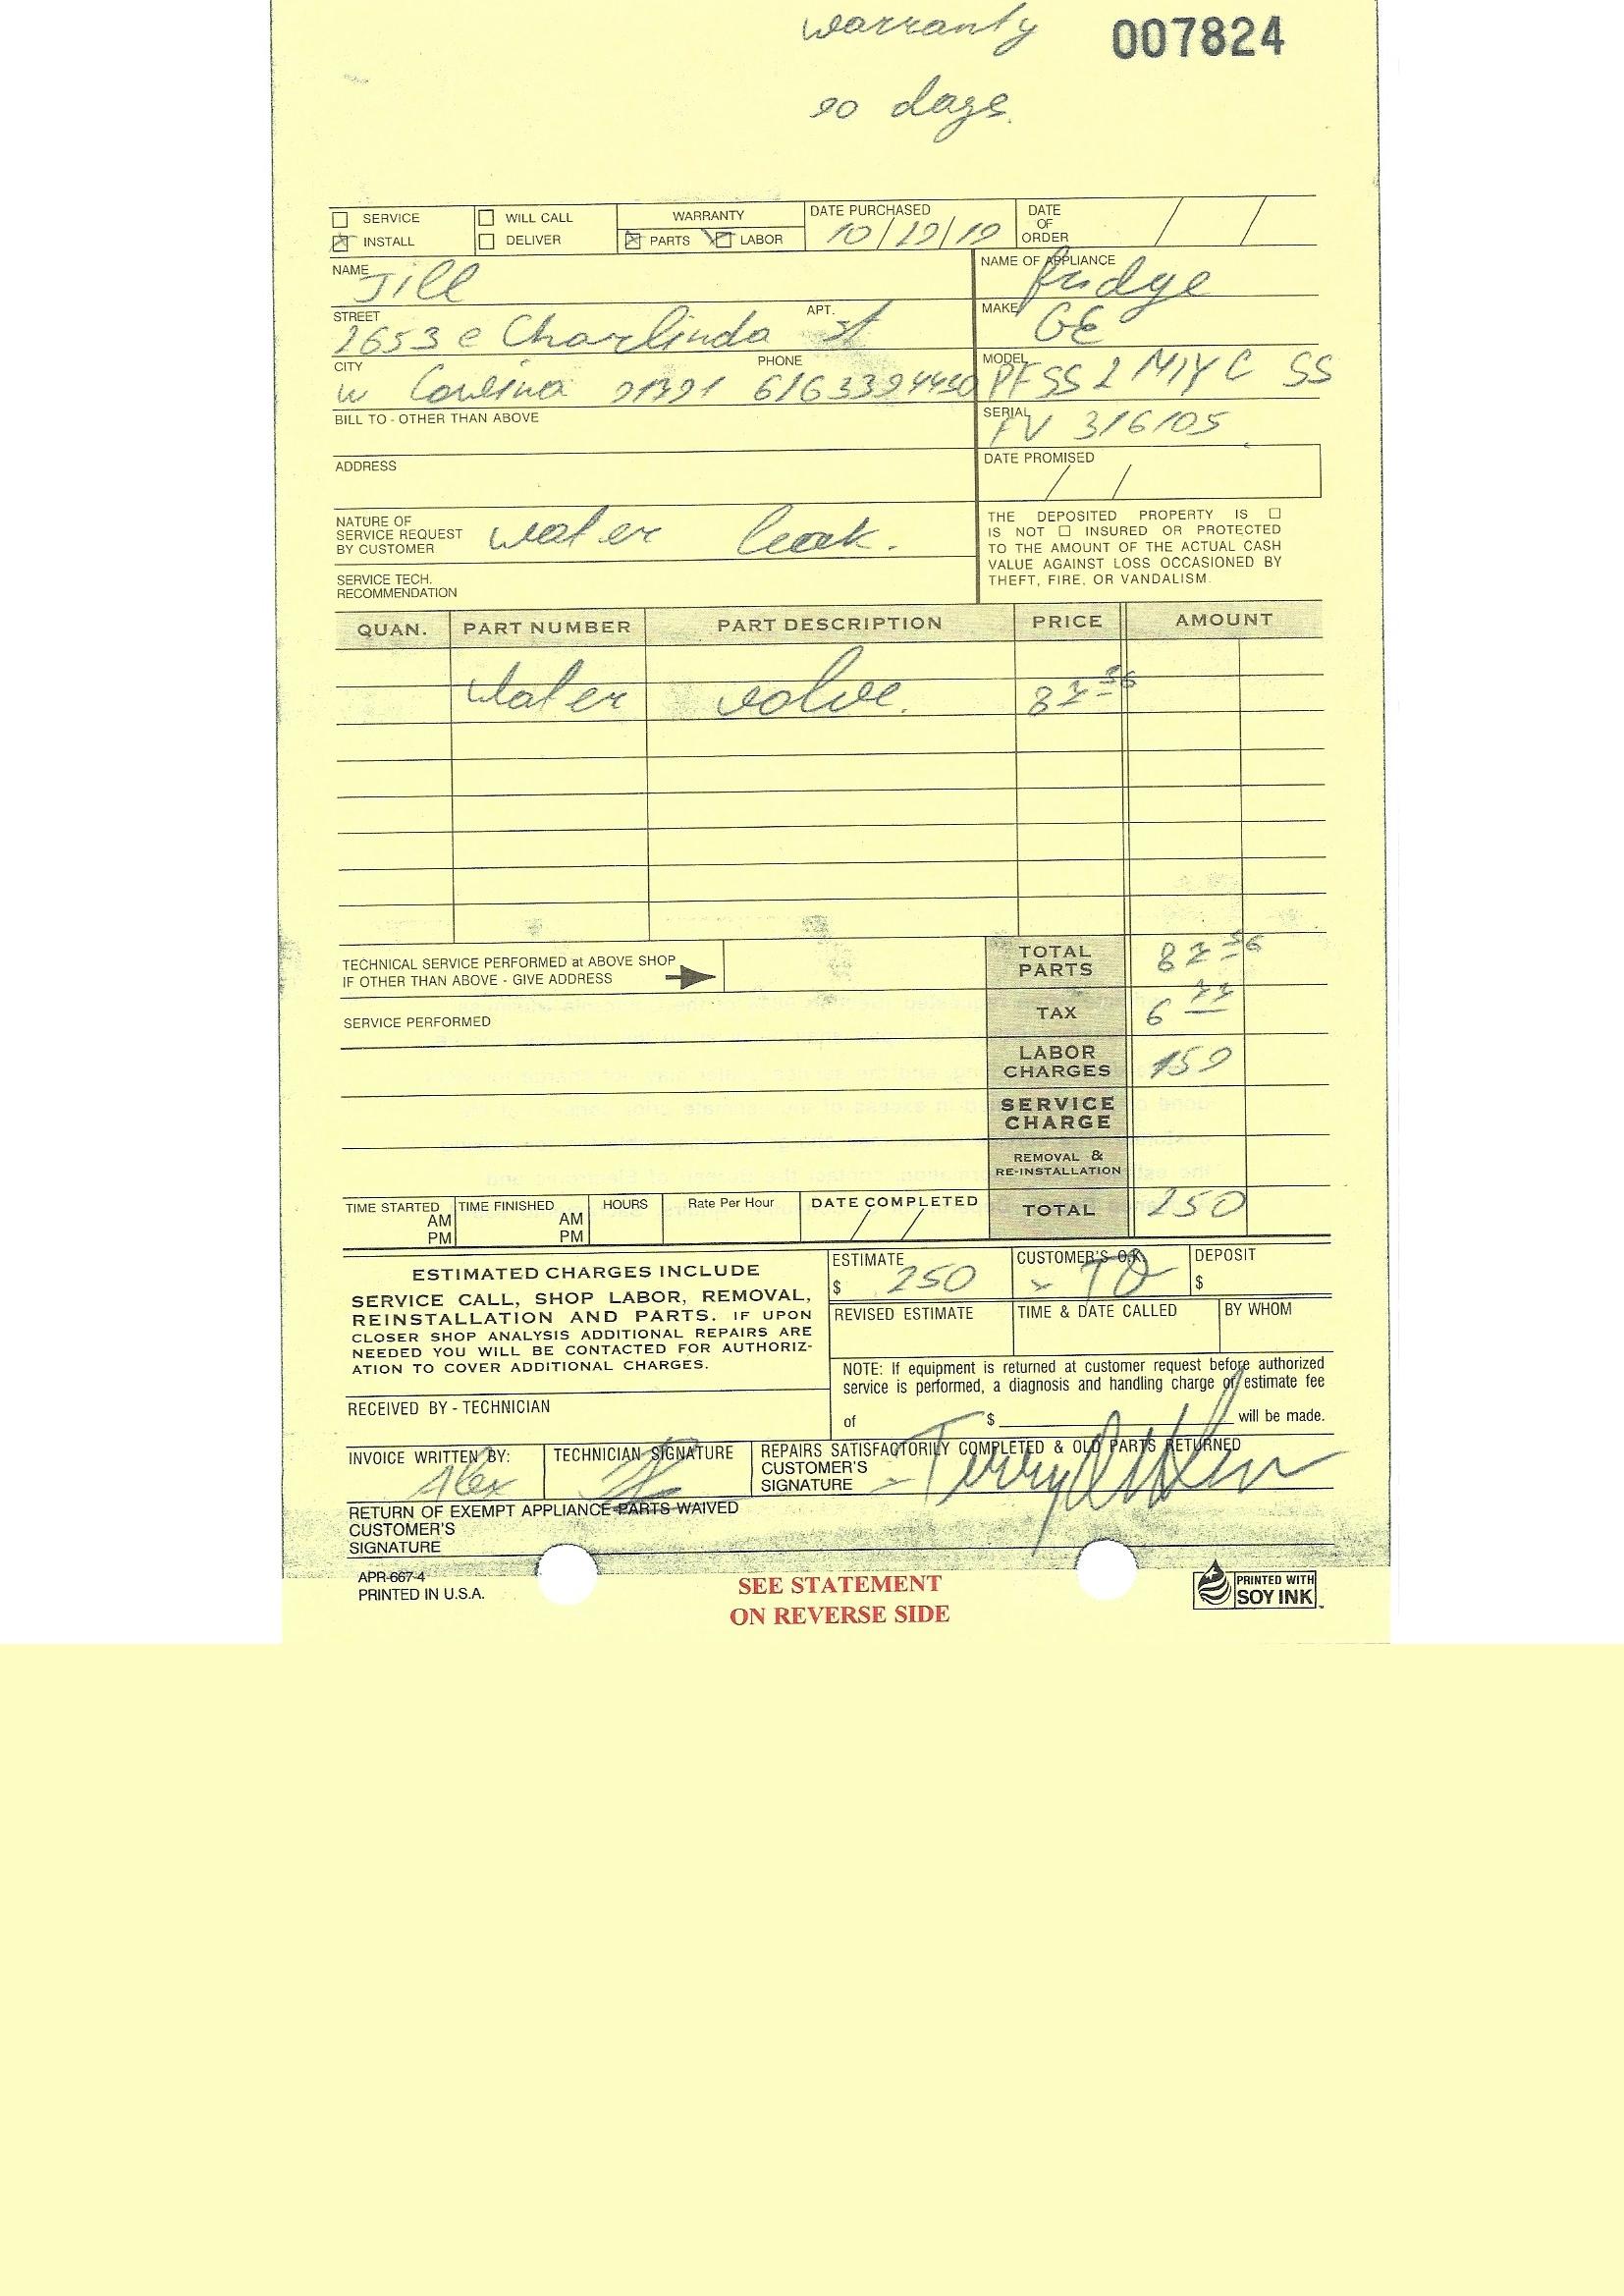 warranty 007824
90 days.
SERVICE WILL CALL WARRANTY DATE PURCHASED 10/19/19 DATE OF ORDER / /
INSTALL DELIVER PARTS LABOR
NAME Jill NAME OF APPLIANCE fridge
STREET 2653 e Charlinda st APT. MAKE GE
CITY w Covina PHONE MODEL
BILL TO - OTHER THAN ABOVE SERIAL FV 316105
ADDRESS DATE PROMISED / /
NATURE OF
SERVICE REQUEST
BY CUSTOMER
water leak.
SERVICE TECH.
RECOMMENDATION
THE DEPOSITED PROPERTY IS ☐
IS NOT ☐ INSURED OR PROTECTED
TO THE AMOUNT OF THE ACTUAL CASH
VALUE AGAINST LOSS OCCASIONED BY
THEFT, FIRE, OR VANDALISM.
QUAN. PART NUMBER PART DESCRIPTION PRICE AMOUNT
water valve.
TECHNICAL SERVICE PERFORMED at ABOVE SHOP
IF OTHER THAN ABOVE - GIVE ADDRESS
SERVICE PERFORMED
TOTAL PARTS
TAX
LABOR CHARGES 150
SERVICE CHARGE
REMOVAL & RE-INSTALLATION
TOTAL 250
TIME STARTED AM PM TIME FINISHED AM PM HOURS Rate Per Hour DATE COMPLETED / /
ESTIMATED CHARGES INCLUDE
SERVICE CALL, SHOP LABOR, REMOVAL,
REINSTALLATION AND PARTS. IF UPON
CLOSER SHOP ANALYSIS ADDITIONAL REPAIRS ARE
NEEDED YOU WILL BE CONTACTED FOR AUTHORIZ-
ATION TO COVER ADDITIONAL CHARGES.
ESTIMATE $ 250 CUSTOMER'S O.K. DEPOSIT $
REVISED ESTIMATE TIME & DATE CALLED BY WHOM
NOTE: If equipment is returned at customer request before authorized
service is performed, a diagnosis and handling charge or estimate fee
of $ will be made.
RECEIVED BY - TECHNICIAN
INVOICE WRITTEN BY: Alex TECHNICIAN SIGNATURE
REPAIRS SATISFACTORILY COMPLETED & OLD PARTS RETURNED
CUSTOMER'S
SIGNATURE
RETURN OF EXEMPT APPLIANCE PARTS WAIVED
CUSTOMER'S
SIGNATURE
APR-667-4
PRINTED IN U.S.A.
SEE STATEMENT
ON REVERSE SIDE
PRINTED WITH
SOY INK™